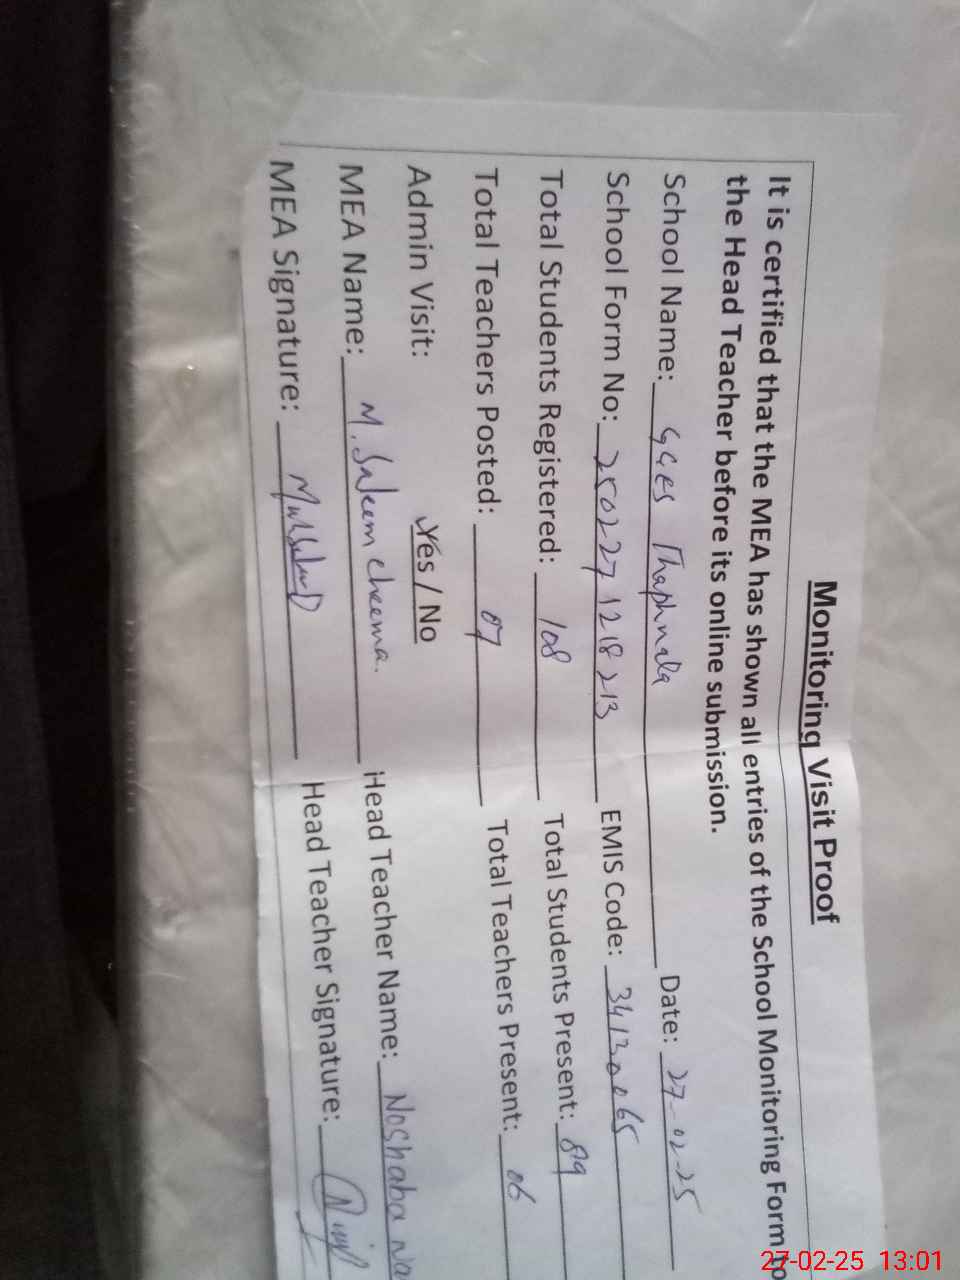 Monitoring Visit Proof
It is certified that the MEA has shown all entries of the School Monitoring Form to
the Head Teacher before its online submission.
School Name: GGES Thaphnala Date: 27-02-25
School Form No: 250227 1218213 EMIS Code: 34130065
Total Students Registered: 108 Total Students Present: 89
Total Teachers Posted: 07 Total Teachers Present: 06
Admin Visit: Yes / No
MEA Name: M. Saleem Cheema. Head Teacher Name: Noshaba
MEA Signature: Head Teacher Signature:
27-02-25 13:01